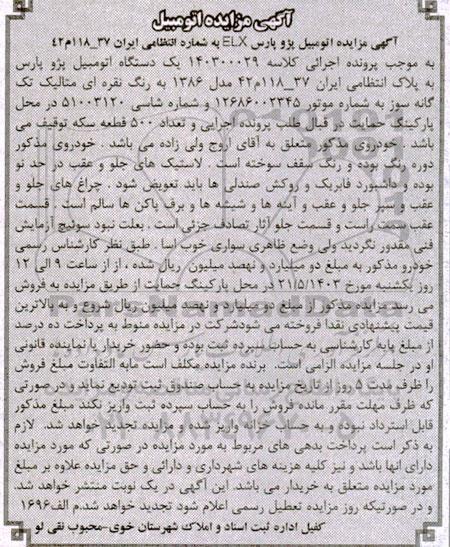 آگهی مزایده اتومبیل
آگهی مزایده اتومبیل پژو پارس ELX به شماره انتظامی ایران 37_118م42
به موجب پرونده اجرائی کلاسه 140300029 یک دستگاه اتومبیل پژو پارس
به پلاک انتظامی ایران 37_118م42 مدل 1386 به رنگ نقره ای متالیک تک
گانه سوز به شماره موتور 12686002345 و شماره شاسی 51003120 در محل
پارکینگ حمایت در قبال طلب پرونده اجرایی و تعداد 500 قطعه سکه توقیف می
باشد . خودروی مذکور متعلق به آقای اروج ولی زاده می باشد . خودروی مذکور
دوره رنگ بوده و رنگ سقف سوخته است . لاستیک های جلو و عقب در حد نو
بوده و داشبورد فابریک و روکش صندلی ها باید تعویض شود . چراغ های جلو و
عقب و سپر جلو و عقب و آینه ها و شیشه ها و برف پاکن ها سالم است . قسمت
عقب سالم است و قسمت جلو آثار تصادف جزئی است . بعلت نبود سوئیچ آزمایش
فنی مقدور نگردید ولی وضع ظاهری سواری خوب اسا . طبق نظر کارشناس رسمی
خودرو مذکور به مبلغ دو میلیارد و نهصد میلیون ریال شده ، از از ساعت 9 الی 12
روز یکشنبه مورخ 21/5/1403 در محل پارکینگ حمایت از طریق مزایده به فروش
می رسد. مزایده مذکور از مبلغ دو میلیارد و نهصد میلیون ریال شروع و به بالاترین
قیمت پیشنهادی نقدا فروخته می شودشرکت در مزایده منوط به پرداخت ده درصد
از مبلغ پایه کارشناسی به حساب سپرده ثبت بوده و حضور خریدار یا نماینده قانونی
او در جلسه مزایده الزامی است. برنده مزایده مکلف است مابه التفاوت مبلغ فروش
را ظرف مدت 5 روز از تاریخ مزایده به حساب صندوق ثبت تودیع نماید و در صورتی
که ظرف مهلت مقرر مانده فروش را به حساب سپرده ثبت واریز نکند مبلغ مذکور
قابل استرداد نبوده و به حساب خزانه واریز شده و مزایده تجدید خواهد شد. لازم
به ذکر است پرداخت بدهی های مربوط به مورد مزایده در صورتی که مورد مزایده
دارای آنها باشد و نیز کلیه هزینه های شهرداری و دارائی و حق مزایده علاوه بر مبلغ
مورد مزایده متعلق به خریدار می باشد. این آگهی در یک نوبت منتشر خواهد شد.
و در صورتیکه روز مزایده تعطیل رسمی اعلام شود تجدید خواهد شد.م الف1696
کفیل اداره ثبت اسناد و املاک شهرستان خوی-محبوب نقی لو